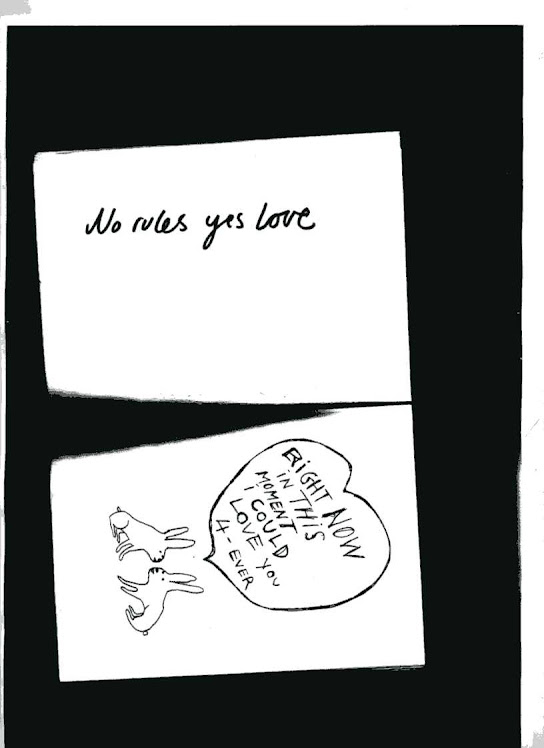 No rules yes love
RIGHT NOW
IN THIS
MOMENT
I COULD
LOVE YOU
4-EVER